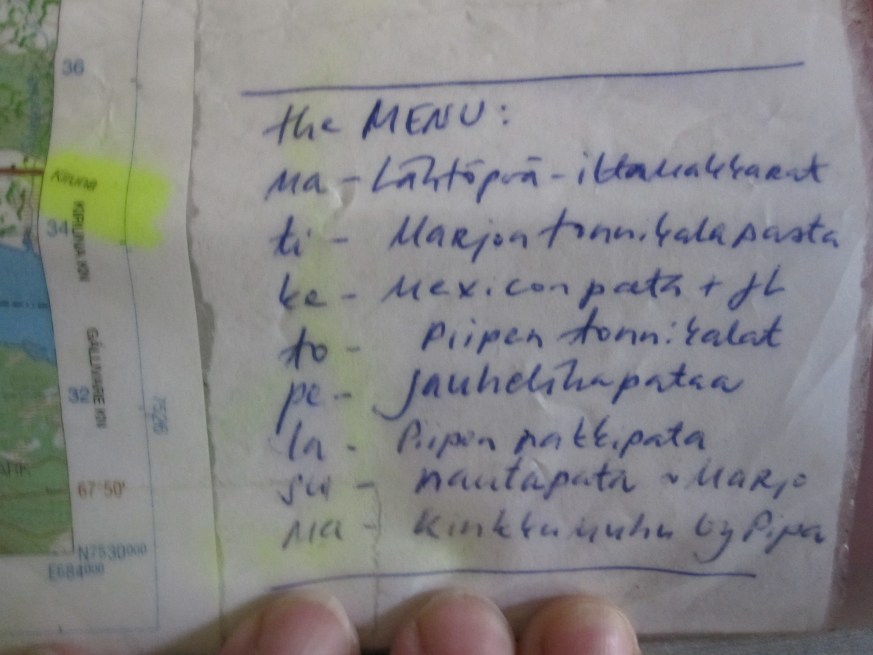 36
Kiruna
KIRUNA KN
34
GÄLLIVARE KN
32
7526
67°50'
N7530000
E684000
the MENU:
ma - Lähtöpvä - iltamakkarat
ti - Marjon tonnikalapasta
ke - Mexicon pata + jL
to - Piipen tonnikalat
pe - jauhelihapataa
la - Piipon nakkipata
su - nautapata ~ Marjo
ma - kinkkumuhu by Pipa